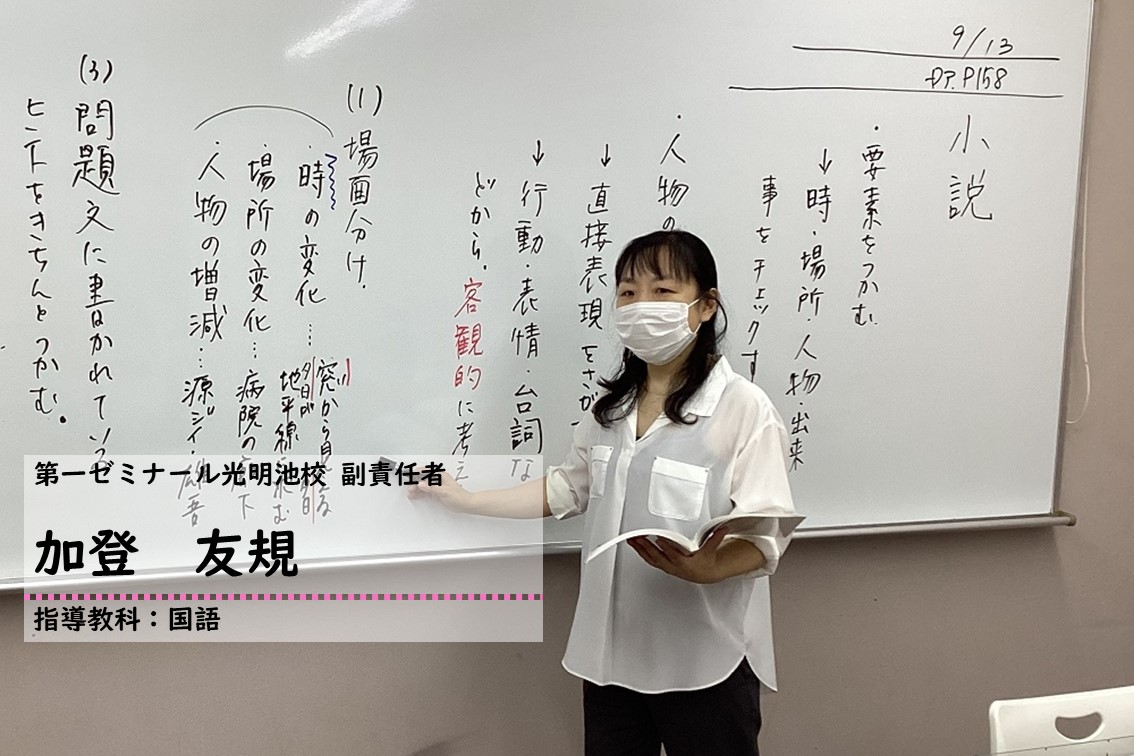 9/13
P158
小説
・要素をつかむ
↓時・場所・人物・出来
事をチェックす
・人物の
↓直接表現をさが
↓行動・表情・台詞な
どから、客観的に考え
(1)場面分け.
・時の変化…窓から見える
地平線
・場所の変化…病院の 下
・人物の増減…源ジイ・ 吾
(3)問題文に書かれている
ヒントをきちんとつかむ。
第一ゼミナール光明池校 副責任者
加登 友規
指導教科：国語